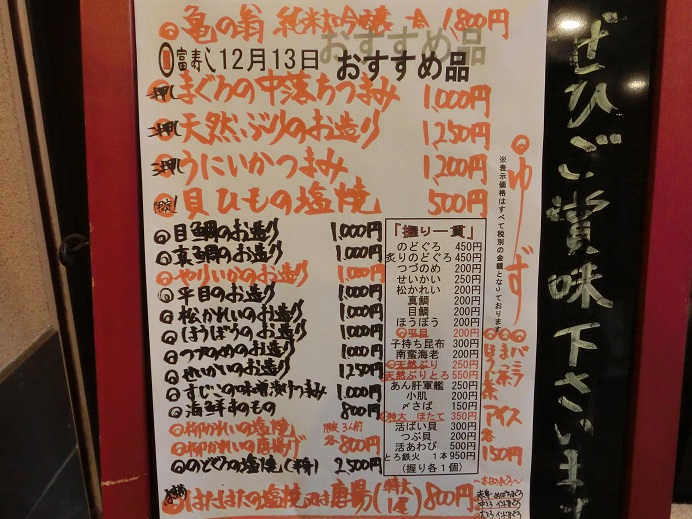 亀の翁 純米大吟醸 一合 1,800円
富寿し 12月13日 おすすめ品
押し まぐろの中落ちつまみ 1,000円
押し 天然ぶりのお造り 1,250円
押し うにいかつまみ 1,200円
限定! 貝ひもの塩焼 500円
目鯛のお造り 1,000円
真鯛のお造り 1,000円
やりいかのお造り 1,000円
平目のお造り 1,000円
松かれいのお造り 1,000円
ほうぼうのお造り 1,000円
つづのめのお造り 1,000円
せいかいのお造り 1,250円
すじこの味噌漬けつまみ 1,000円
海鮮すのもの 800円
柳かれいの塩焼 限定3人前
柳かれいの唐揚げ 各800円
のどぐろの塩焼(半身) 2,500円
はたはたの塩焼又は唐揚(特大1尾) 800円
「握り一貫」
のどぐろ 450円
炙りのどぐろ 450円
つづのめ 200円
せいかい 250円
松かれい 200円
真鯛 200円
目鯛 200円
ほうぼう 200円
平目 200円
子持ち昆布 300円
南蛮海老 200円
天然ぶり 250円
天然ぶりとろ 550円
あん肝軍艦 250円
小肌 200円
〆さば 150円
特大 ほたて 350円
活ばい貝 300円
つぶ貝 200円
活あわび 500円
とろ鉄火 1本 950円
(握り各1個)
※表示価格はすべて税別の金額となっております
ゆず
バニラ
まっ茶
ほうじ茶
アイス
各150円
〜本日の本入〜
ぜひご賞味下さいます